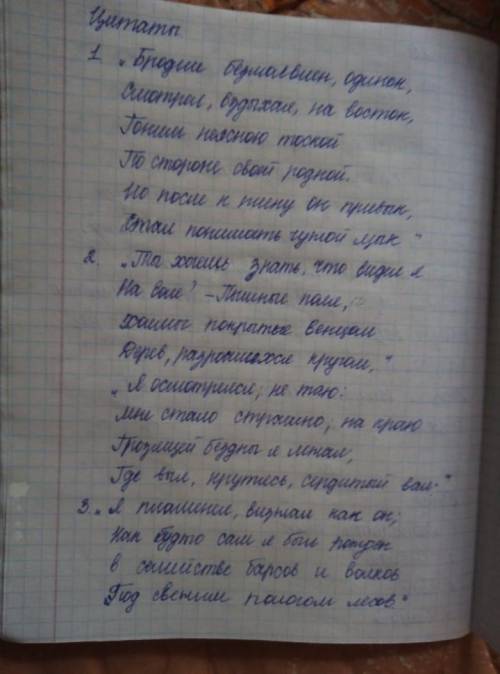 Цитаты.
1. „Бродил безмолвен, одинок,
Смотрел, вздыхая, на восток,
Гоним неясною тоской
По стороне своей родной.
Но после к плену он привык,
Стал понимать чужой язык"
2. „Ты хочешь знать, что видел я
На воле? - Пышные поля,
Холмы покрытые венцом
Дерев, разросшихся кругом,"
„Я осмотрелся; не таю:
Мне стало страшно; на краю
Грозящей бездны я лежал,
Где выл, крутясь, сердитый вал."
3. „Я пламенел, визжал как он;
Как будто сам я был рожден
в семействе барсов и волков
Под свежим пологом лесов."